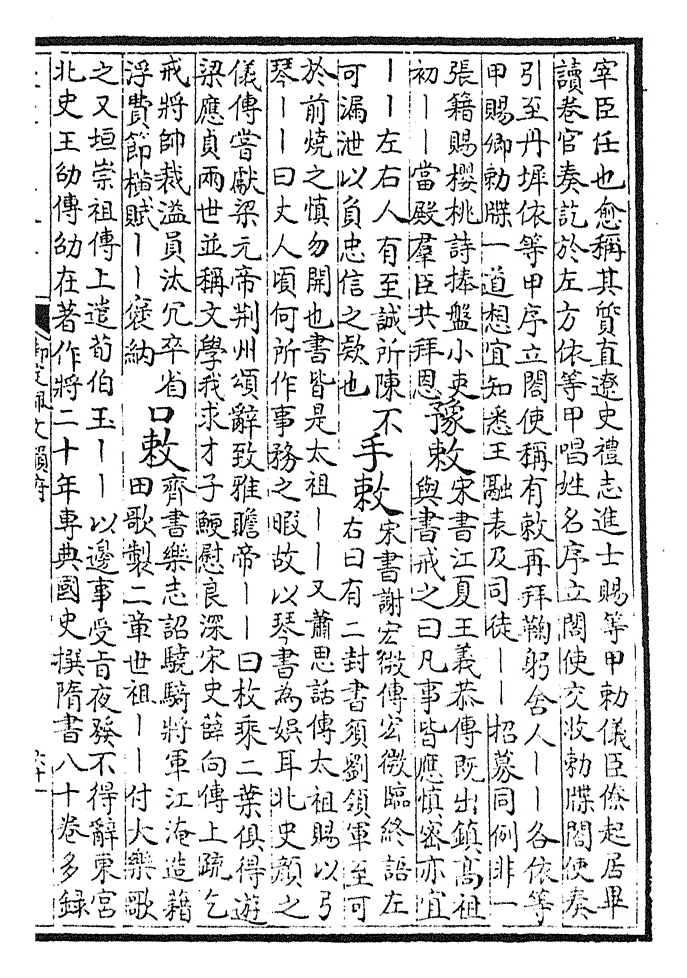 宰臣任也愈稱其質直遼史禮志進士賜等甲勅儀臣僚起居畢
讀卷官奏訖於左方依等甲唱姓名序立閤使交收勅牒閤使奏
引至丹墀依等甲序立閤使稱有敕再拜鞠躬舍人丨丨各依等
甲賜卿勅牒一道想宜知悉王融表及司徒丨丨招募同例非一
張籍賜櫻桃詩捧盤小吏
初丨丨當殿羣臣共拜恩
豫敕
宋書江夏王義恭傳既出鎮髙祖
與書戒之曰凡事皆應慎密亦宜
丨丨左右人有至誠所陳不
可漏泄以負忠信之欵也
手敕
宋書謝宏微傳宏微臨終語左
右曰有二封書須劉領軍至可
於前燒之慎勿開也書皆是太祖丨丨又蕭思話傳太祖賜以弓
琴丨丨曰丈人頃何所作事務之暇故以琴書為娛耳北史顔之
儀傳嘗獻梁元帝荆州頌辭致雅贍帝丨丨曰枚乘二葉俱得遊
梁應貞兩世並稱文學我求才子鯁慰良深宋史薛向傳上疏乞
戒將帥裁溢員汰冗卒省
浮費節橫賦丨丨褒納
口敕
齊書樂志詔驍騎將軍江淹造藉
田歌製二章世祖丨丨付大樂歌
之又垣崇祖傳上遣荀伯玉丨丨以邊事受旨夜發不得辭東宮
北史王劭傳劭在著作將二十年專典國史撰隋書八十卷多録
御定佩文韻府